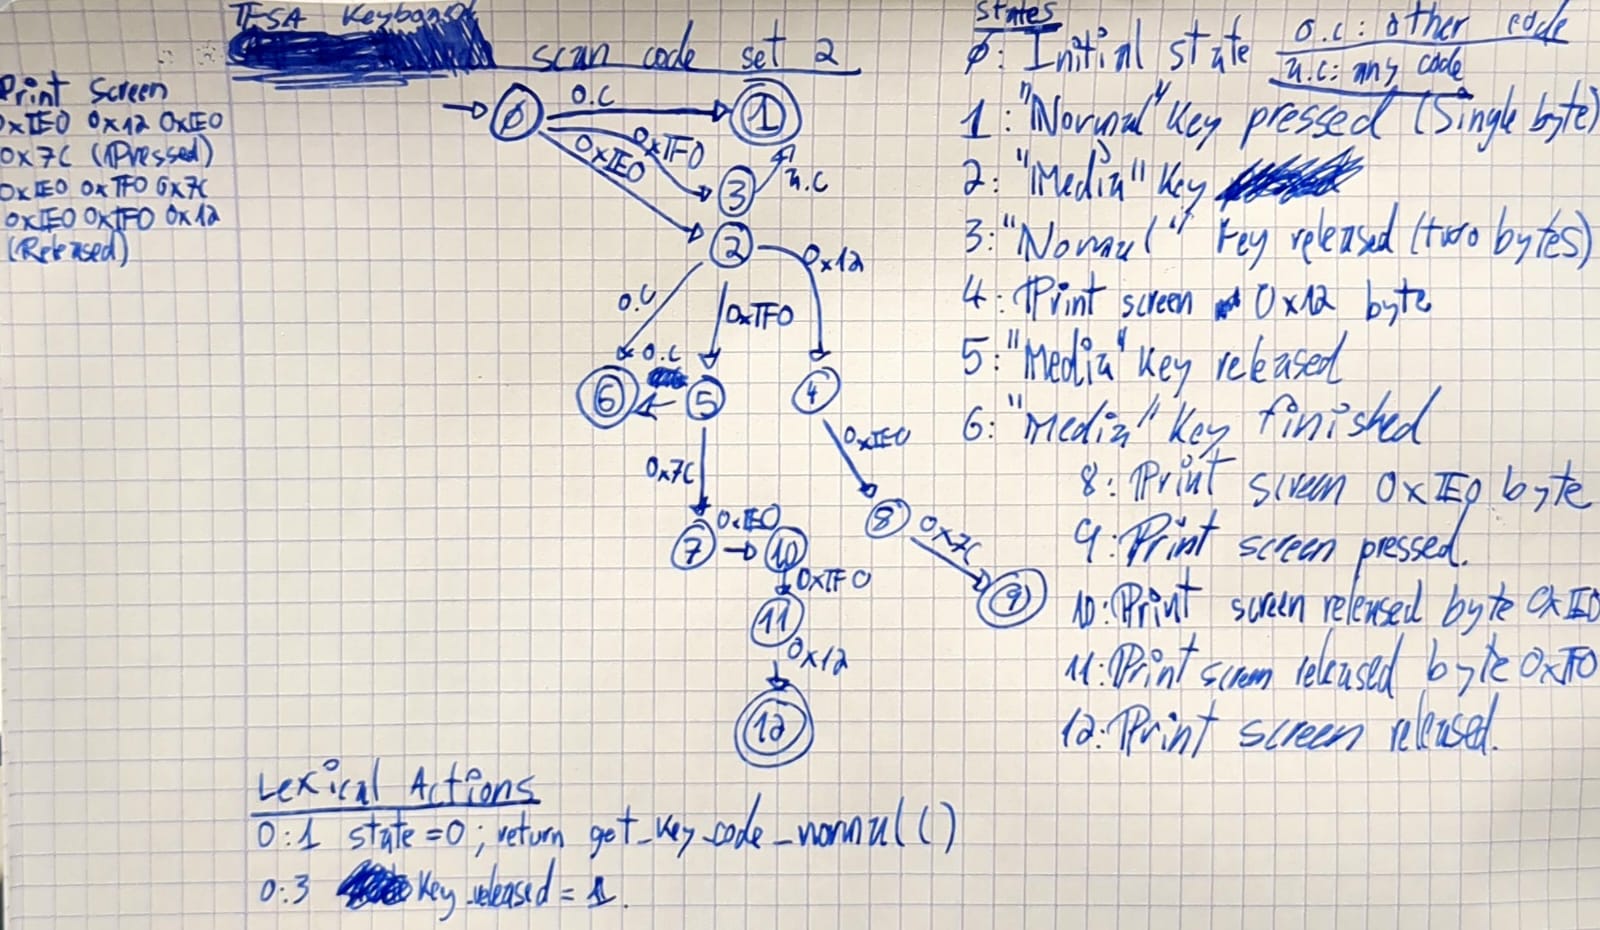 FSA Keyboard
scan code set 2
Print Screen
0xE0 0x12 0xE0
0x7C (Pressed)
0xE0 0xF0 0x7C
0xE0 0xF0 0x12
(Released)
0
o.c
1
0xF0
0xE0
3
a.c
2
0x12
o.c
0xF0
o.c
6
5
4
0x7C
0xE0
7
0xE0
10
8
0x7C
0xF0
9
11
0x12
12
States
o.c: other code
a.c: any code
0: Initial state
1: "Normal" Key pressed (Single byte)
2: "Media" Key
3: "Normal" Key released (two bytes)
4: Print screen 0x12 byte
5: "Media" Key released
6: "Media" Key finished
8: Print screen 0xE0 byte
9: Print screen pressed.
10: Print screen released byte 0xE0
11: Print screen released byte 0xF0
12: Print screen released.
Lexical Actions
0:1 state=0; return get_key_code_normal()
0:3 Key_released = 1.